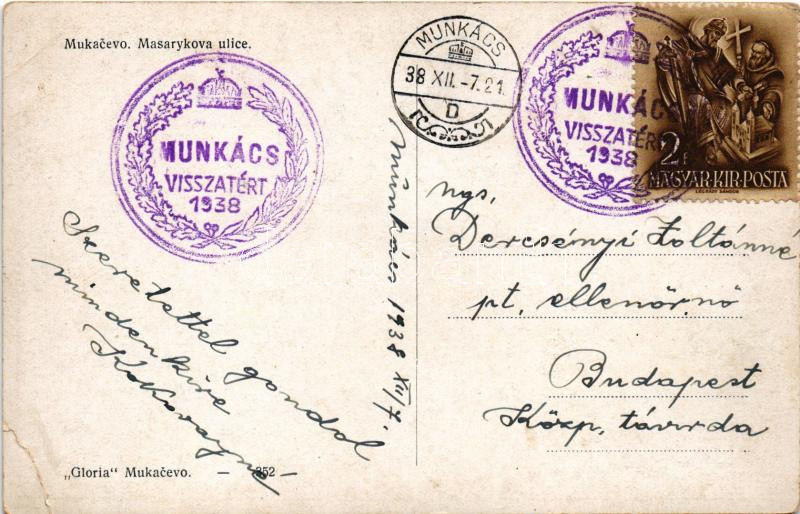 Mukačevo. Masarykova ulice.
MUNKÁCS
VISSZATÉRT
1938
MUNKÁCS
38 XII. -7. 21
D
MUNKÁCS
VISSZATÉRT
1938
2
MAGYAR·KIR·POSTA
LÉGRÁDY SÁNDOR
Szeretettel gondol
mindenkire
Munkács 1938 XII/7.
ngs.
Dercsényi Zoltánné
pt. ellenőrnő
Budapest
Közp. távírda
„Gloria“ Mukačevo. — 352 —